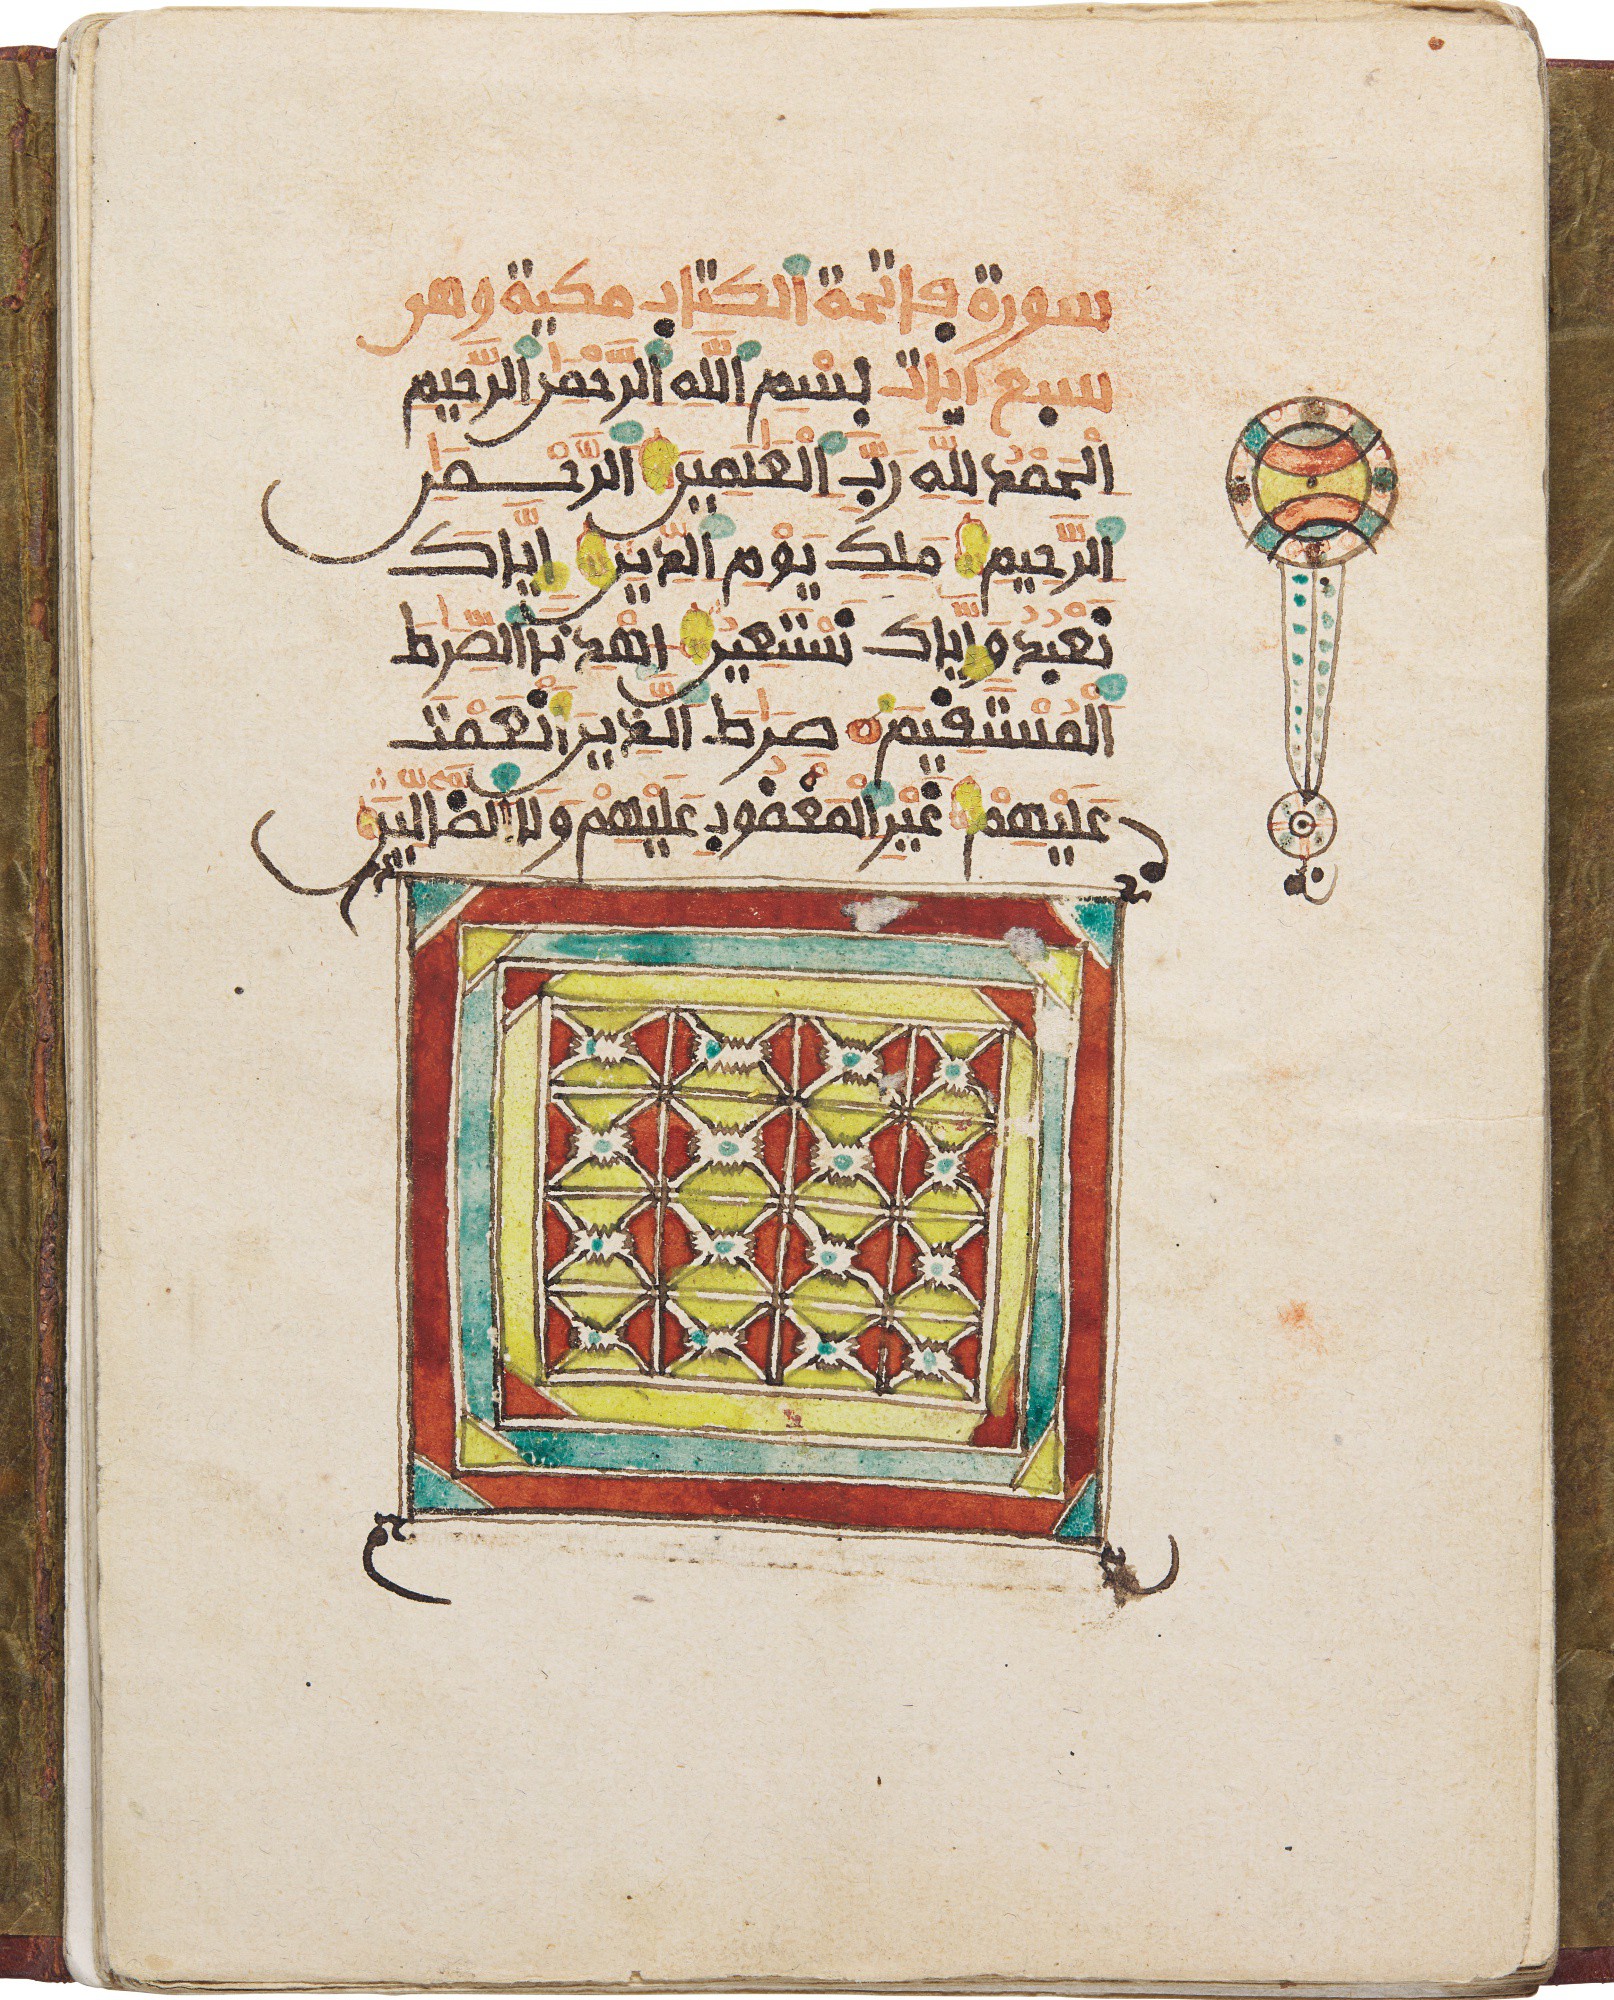 سورة فاتحة الكتاب مكية وهي
سبع ءايات بِسْمِ اللَّهِ الرَّحْمَٰنِ الرَّحِيمِ
الْحَمْدُ لِلَّهِ رَبِّ الْعَٰلَمِينَ الرَّحْمَٰنِ
الرَّحِيمِ مَلِكِ يَوْمِ الدِّينِ إِيَّاكَ
نَعْبُدُ وَإِيَّاكَ نَسْتَعِينُ اهْدِنَا الصِّرَٰطَ
الْمُسْتَقِيمَ صِرَٰطَ الَّذِينَ أَنْعَمْتَ
عَلَيْهِمْ غَيْرِ الْمَغْضُوبِ عَلَيْهِمْ وَلَا الضَّالِّينَ